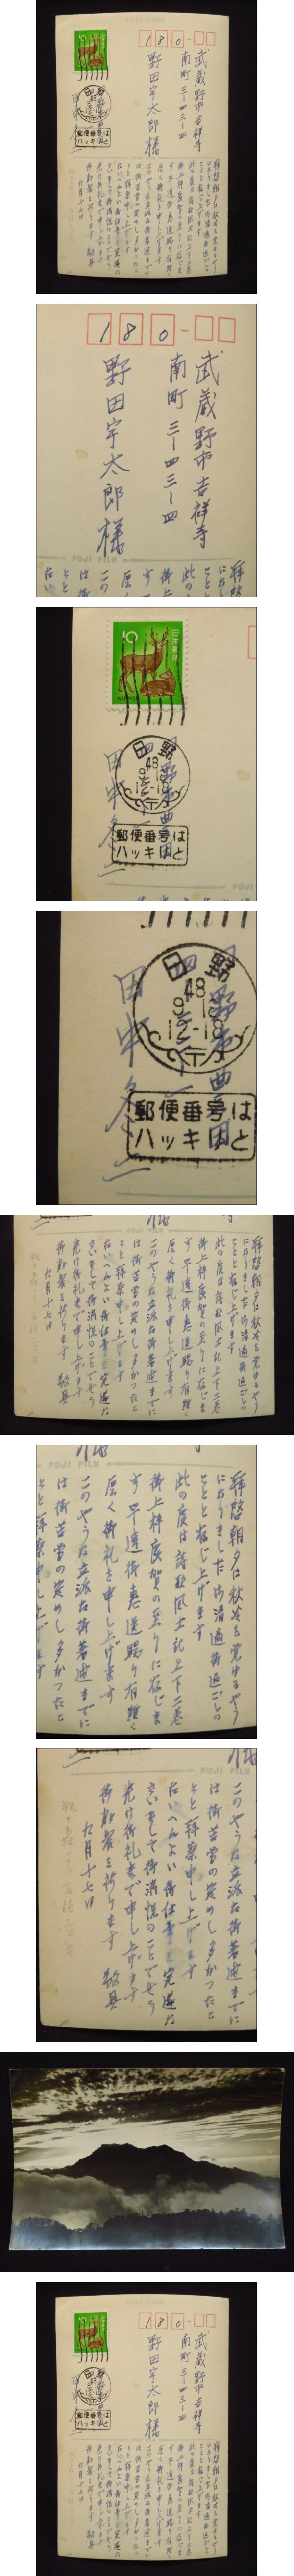 POST CARD
180-
武蔵野市吉祥寺
南町 三ー四三ー四
野田宇太郎様
日本郵便
10
NIPPON
日野
48
9 18
12-18
郵便番号は
ハッキリと
田中冬二
FUJI FILM
拝啓 朝夕は秋冷を覚ゆるやう
になりました 御清適御過ごしの
ことと存じ上げます
此の度は詩歌風土記上下二巻
御上梓慶賀の至りに存じま
す 早速御恵送賜り有難く
厚く御礼を申し上げます
このやうな立派な御著述までに
は御苦労の定めし多かつたこ
とと拝察申し上げます
たいへんよい御仕事を完遂な
さいまして御満悦のことでせう
先は御礼まで申し上げます
御動静を祈ります 敬具
九月十七日